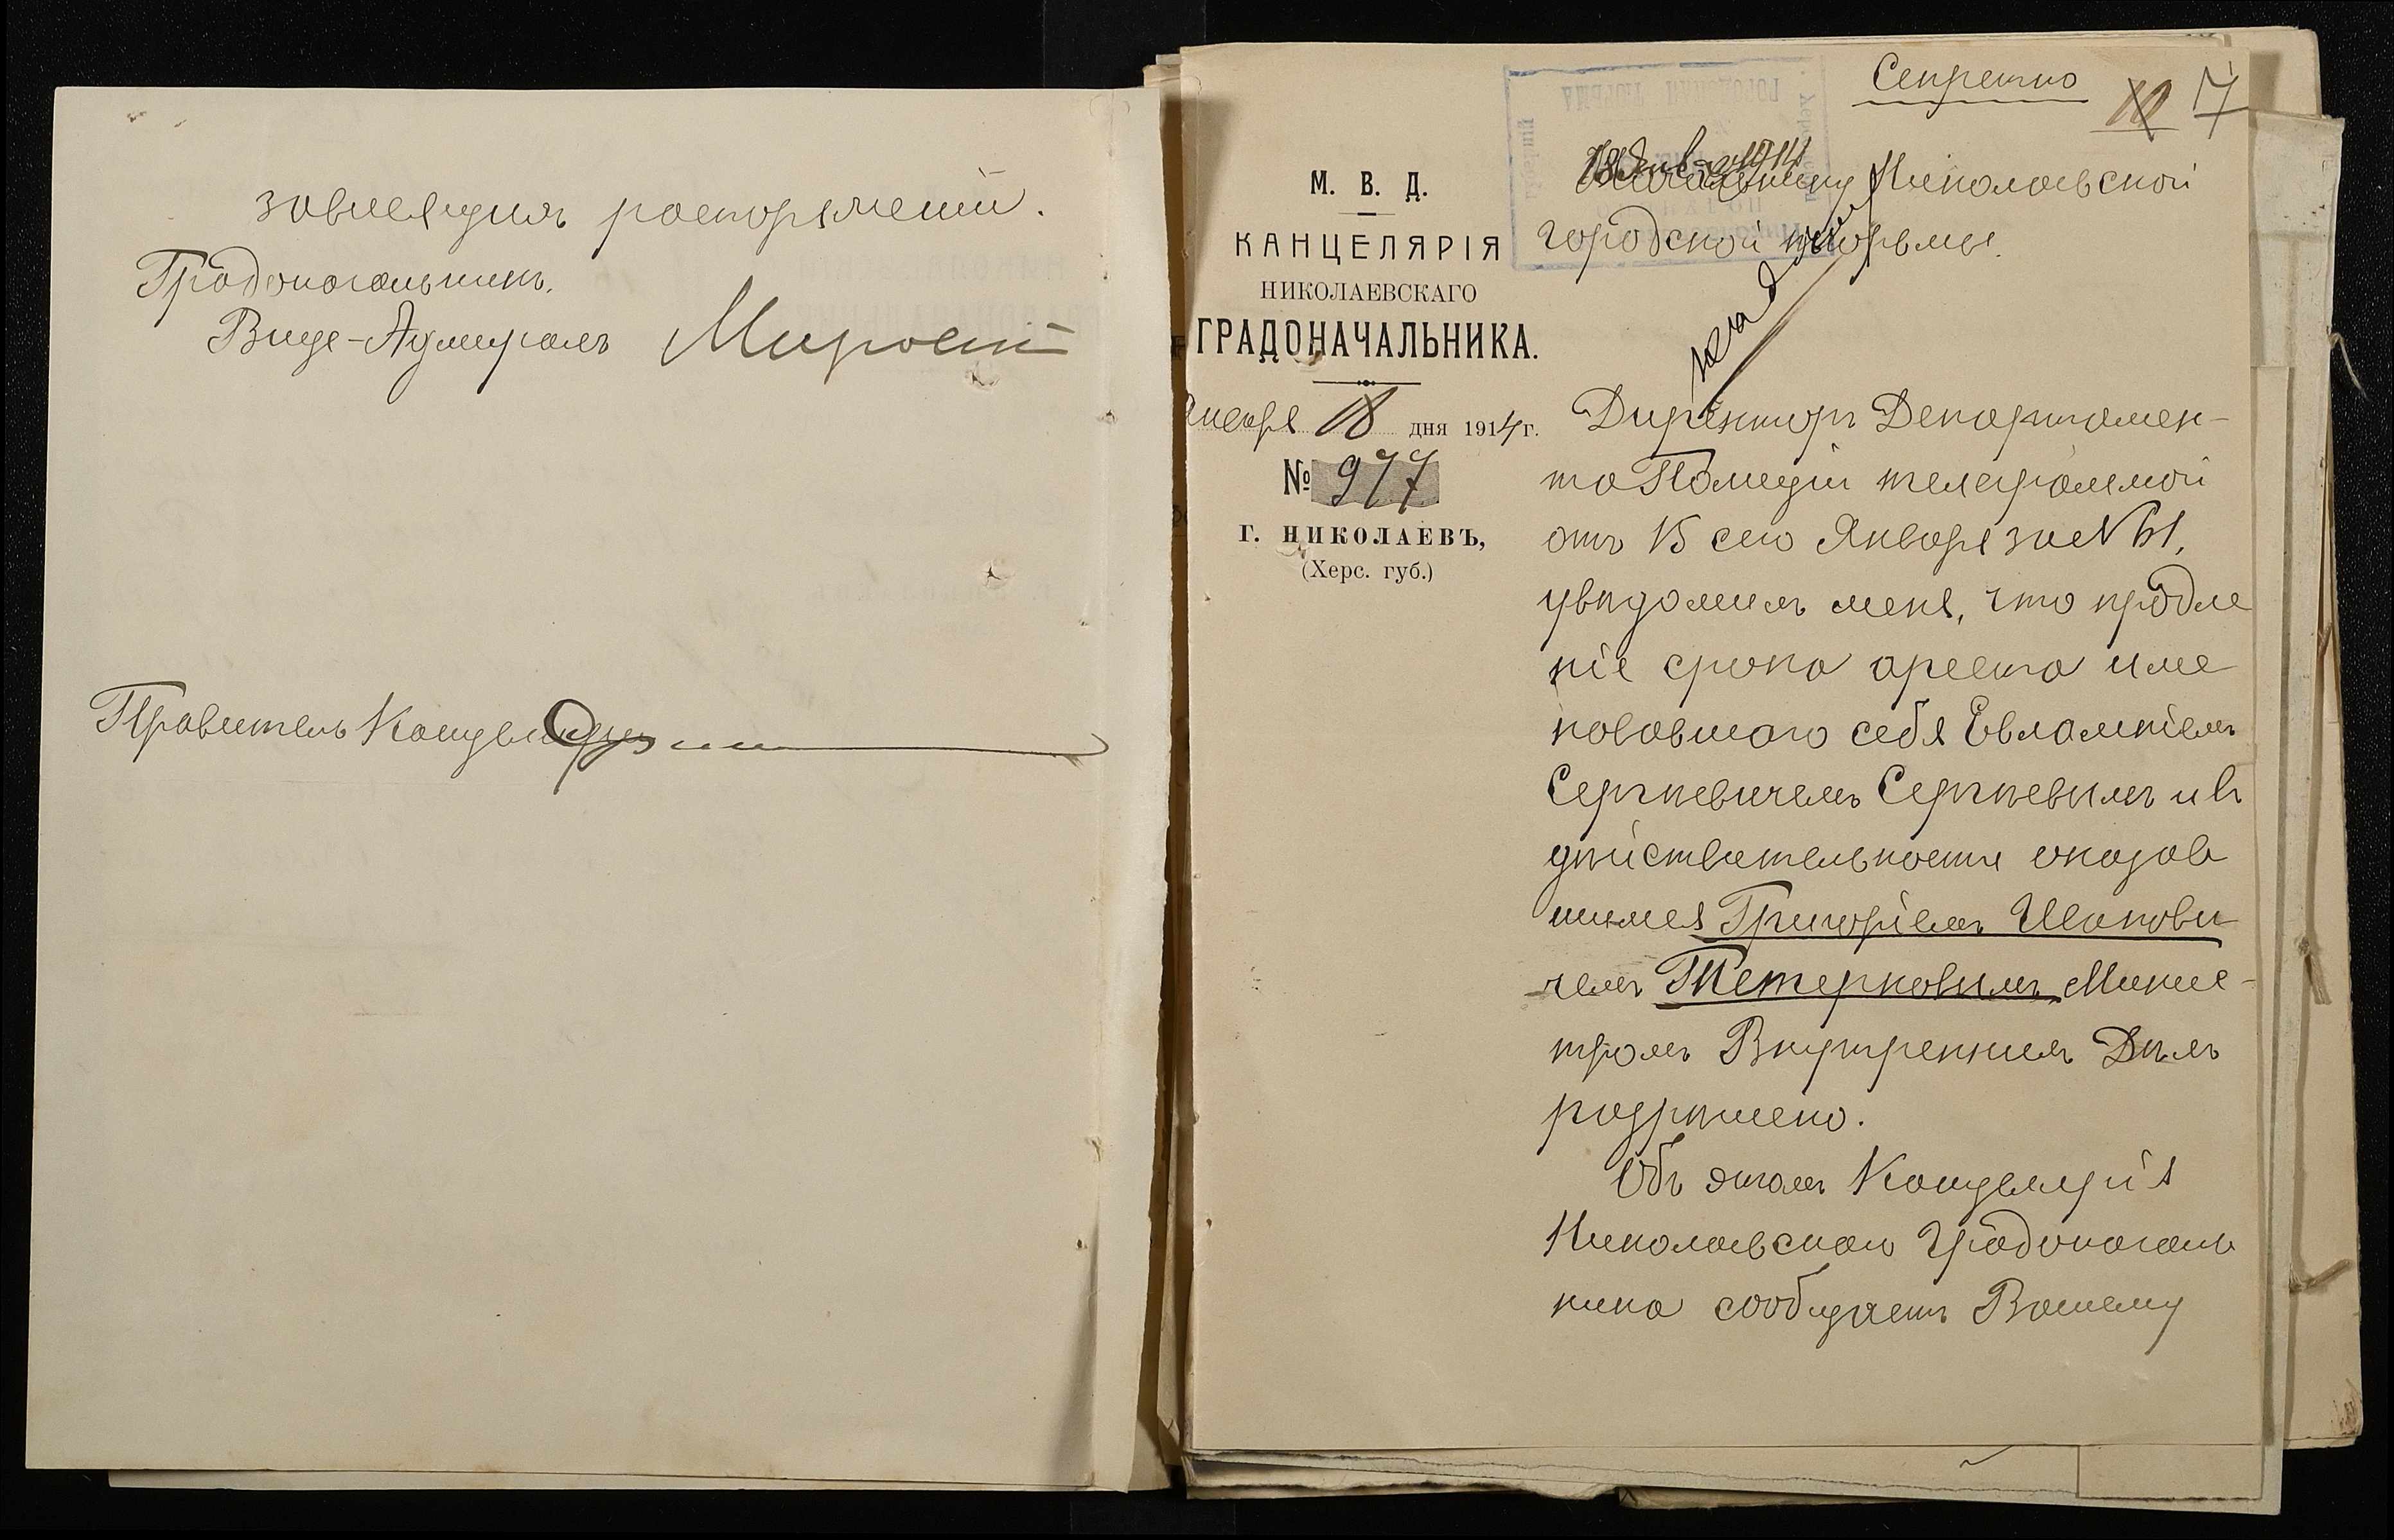 зависящихъ распоряженій.
Градоначальникъ,
Вице-Адмиралъ
Правитель Канцеляріи
Секретно
10 17
18 Янв 1914
М. В. Д.
КАНЦЕЛЯРІЯ
НИКОЛАЕВСКАГО
ГРАДОНАЧАЛЬНИКА.
Января 18 дня 1914 г.
№ 977
Г. НИКОЛАЕВЪ,
(Херс. губ.)
Начальнику Николаевской
городской тюрьмы.
Директоръ Департамен-
та Полиціи телеграммой
отъ 15 сего Января за № 61,
увѣдомилъ меня, что продле
ніе срока ареста име
новавшаго себя Евлампіемъ
Сергѣевичемъ Сергѣевымъ и въ
дѣйствительности оказав
шимся Григоріемъ Ивановы
чемъ Тетерковымъ Минис-
тромъ Внутреннихъ Дѣлъ
разрѣшено.
Объ этомъ Канцелярія
Николаевскаго Градоначаль
ника сообщаетъ Вашему